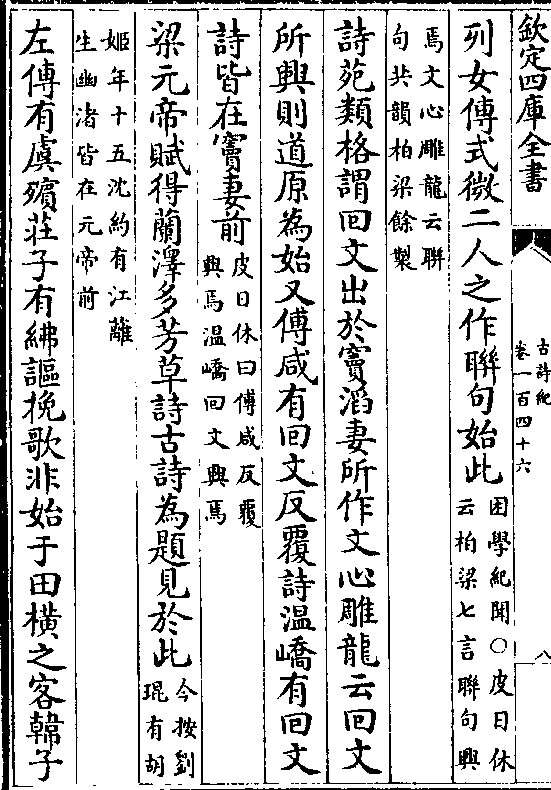 欽定四庫全書
古詩紀
卷一百四十六
八
列女傳式微二人之作聯句始此
困學紀聞○皮日休
云柏梁七言聯句興
焉文心雕龍云聨
句共韻柏梁餘製
詩苑類格謂回文出於竇滔妻所作文心雕龍云回文
所興則道原為始又傅咸有回文反覆詩温嶠有回文
詩皆在竇妻前
皮日休曰傅咸反覆
興焉温嶠回文興焉
梁元帝賦得蘭澤多芳草詩古詩為題見於此
今按劉
琨有胡
姬年十五沈約有江蘺
生幽渚皆在元帝前
左傳有虞殯莊子有紼謳挽歌非始于田横之客韓子